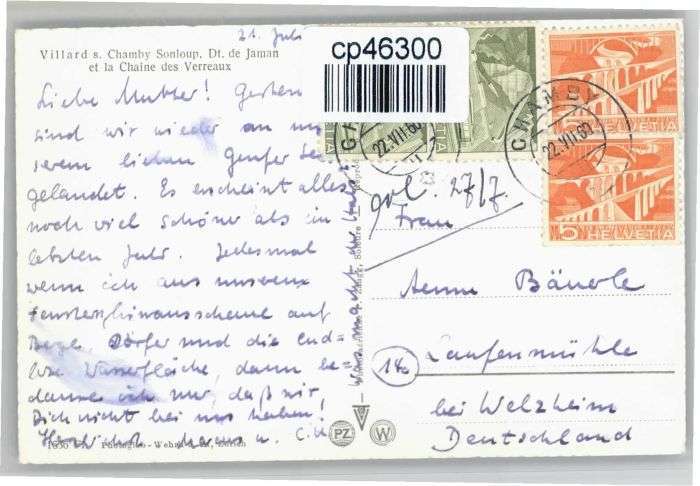 21. Juli
Villard s. Chamby Sonloup, Dt. de Jaman
et la Chaîne des Verreaux
cp46300
Liebe Mutter! Gestern
sind wir wieder an un
serem lieben Genfer See
gelandet. Es erscheint alles
noch viel schöner als im
letzten Jahr. Jedesmal
wenn ich aus unserem
Fenster hinausschaue auf
Berge, Dörfer und die end-
lose Wasserfläche, dann be
daure ich nur, daß wir
Dich nicht bei uns haben!
Herzlichst
was macht die
CHAMBY
22.VII.60
CHAMBY
22.VII.60
HELVETIA
5 HELVETIA
gol. 27/7.
Frau
Aenne Bäuerle
Laufenmühle
14a
bei Welzheim
Deutschland
PZ
W